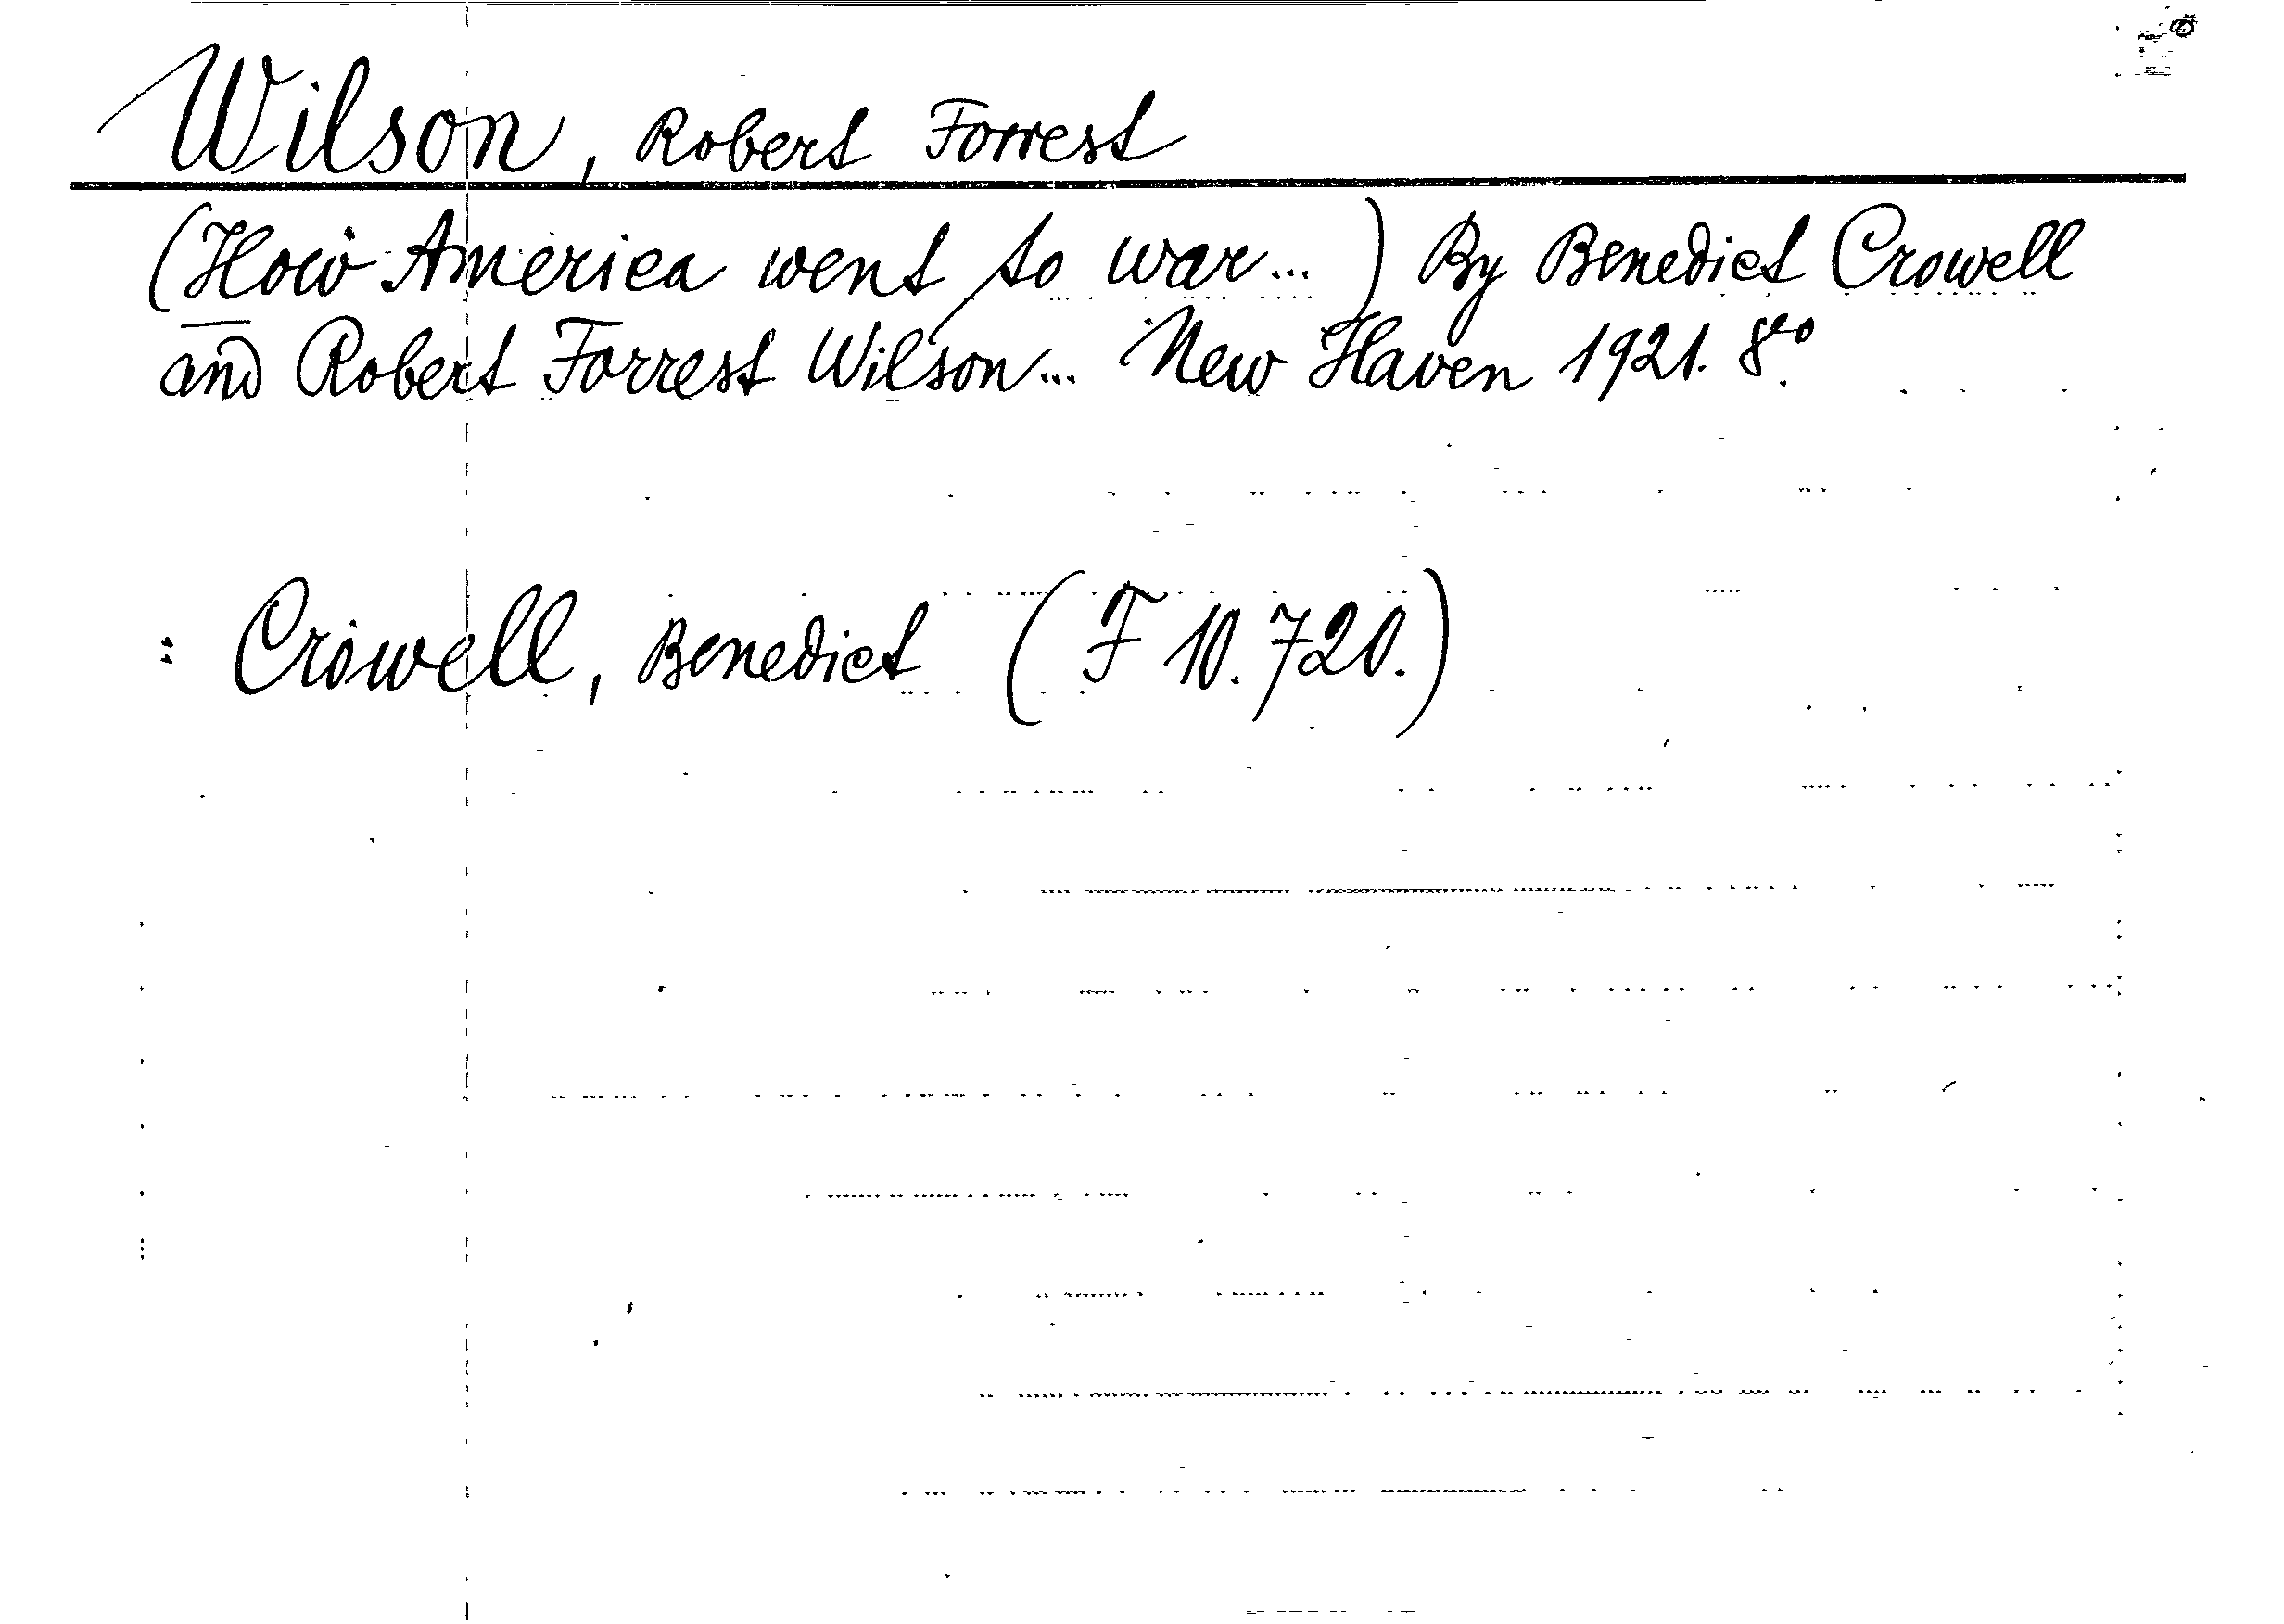 Wilson, Robert Forrest
(How America went to war...) By Benedict Crowell
and Robert Forrest Wilson... New Haven 1921. 8vo.
: Crowell, Benedict (F 10.720.)